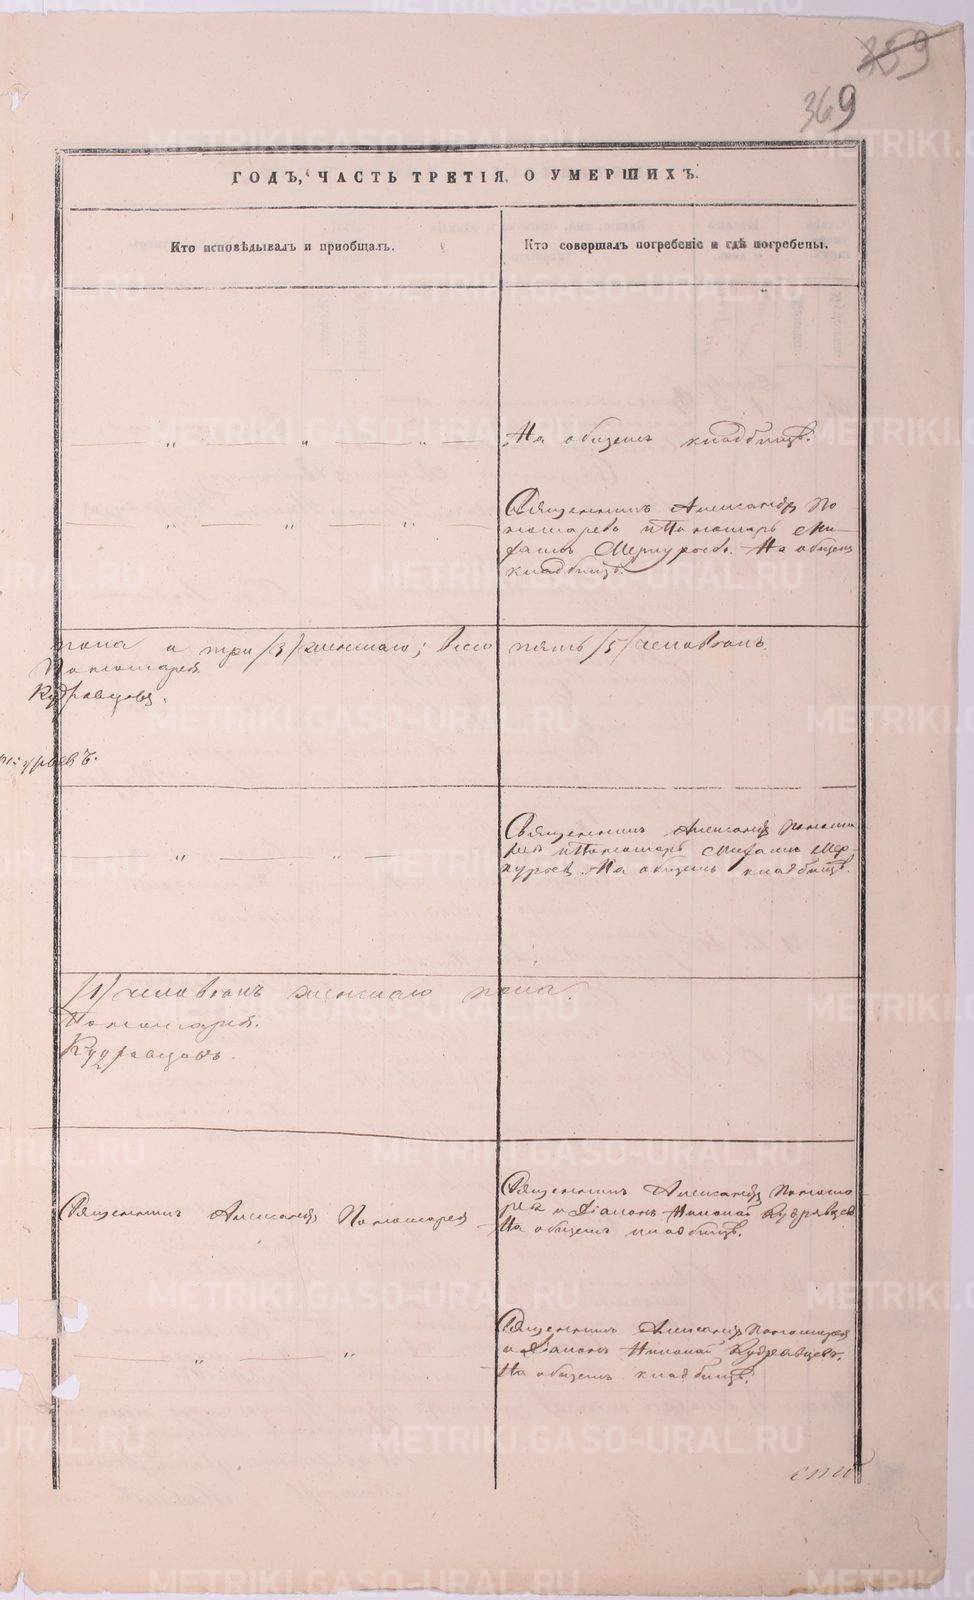 359
369
ГОДЪ, ЧАСТЬ ТРЕТІЯ, О УМЕРШИХЪ.
Кто исповѣдывалъ и пріобщалъ.
Кто совершалъ погребеніе и гдѣ погребены.
На общемъ кладбищѣ.
Священникъ Александръ По
номаревъ и Пономарь Ми-
хаилъ Меркурьевъ. На общемъ
кладбищѣ.
пола и три /3/ женскаго; всего пять /5/ человѣкъ.
Пономарев
Кудрявцовъ.
курьевъ.
Священникъ Александръ Понома
ревъ и Пономарь Михаилъ Мер-
курьевъ. На общемъ кладбищѣ.
/1/ человѣкъ женскаго пола.
Пономарев
Кудрявцовъ.
Священникъ Александръ Пономаревъ
Священникъ Александръ Понома
ревъ и Діаконъ Николай Кудрявцевъ
На общемъ кладбищѣ.
Священникъ Александръ Пономаревъ
и Діаконъ Николай Кудрявцевъ.
На общемъ кладбищѣ.
METRIKI.GASO-URAL.RU